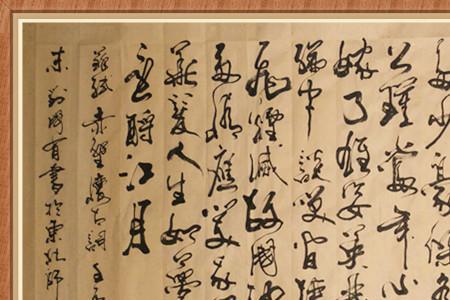 多少豪傑
公瑾當年小
嫁了雄姿英
綸中談笑間檣
飛煙滅故國神
多情應笑我
華髮人生如夢
還酹江月
蘇軾赤壁懷古詞
書於東